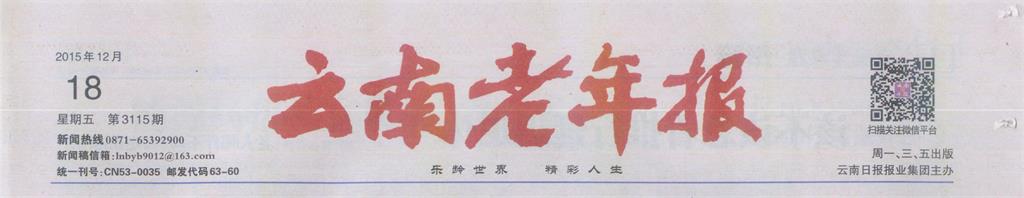 2015年12月
18
星期五 第3115期
新闻热线0871-65392900
新闻稿信箱:lnbyb9012@163.com
统一刊号:CN53-0035 邮发代码63-60
云南老年报
乐龄世界 精彩人生
扫描关注微信平台
周一、三、五出版
云南日报报业集团主办